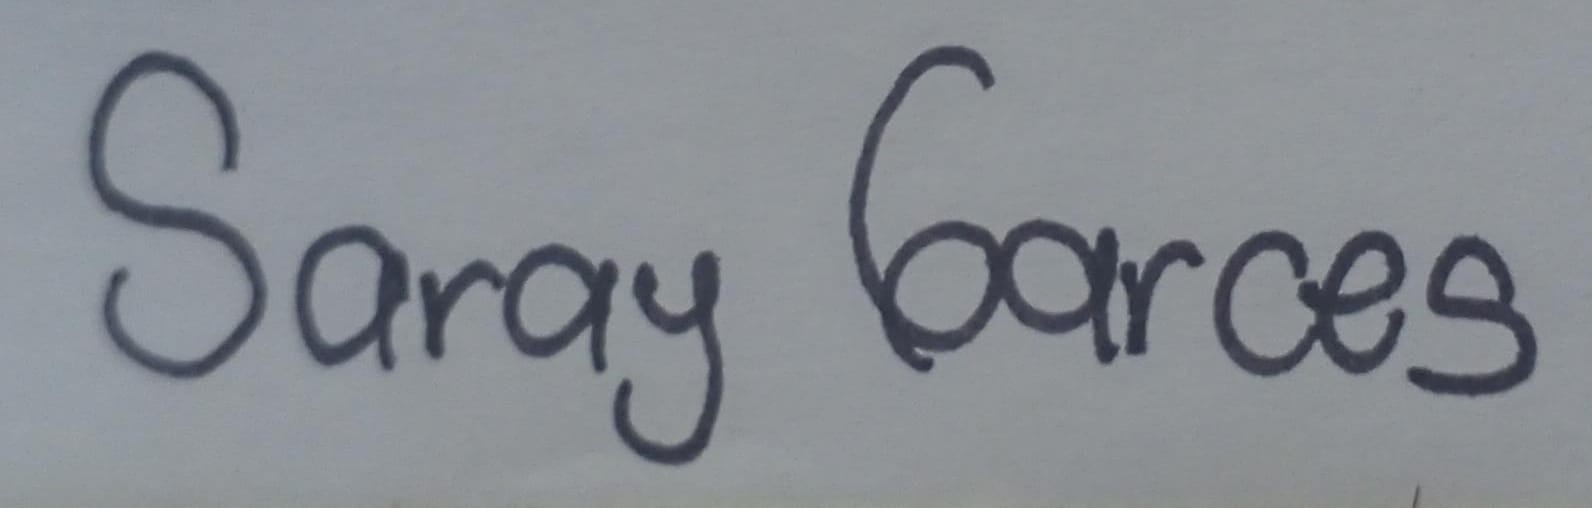 Saray Garces